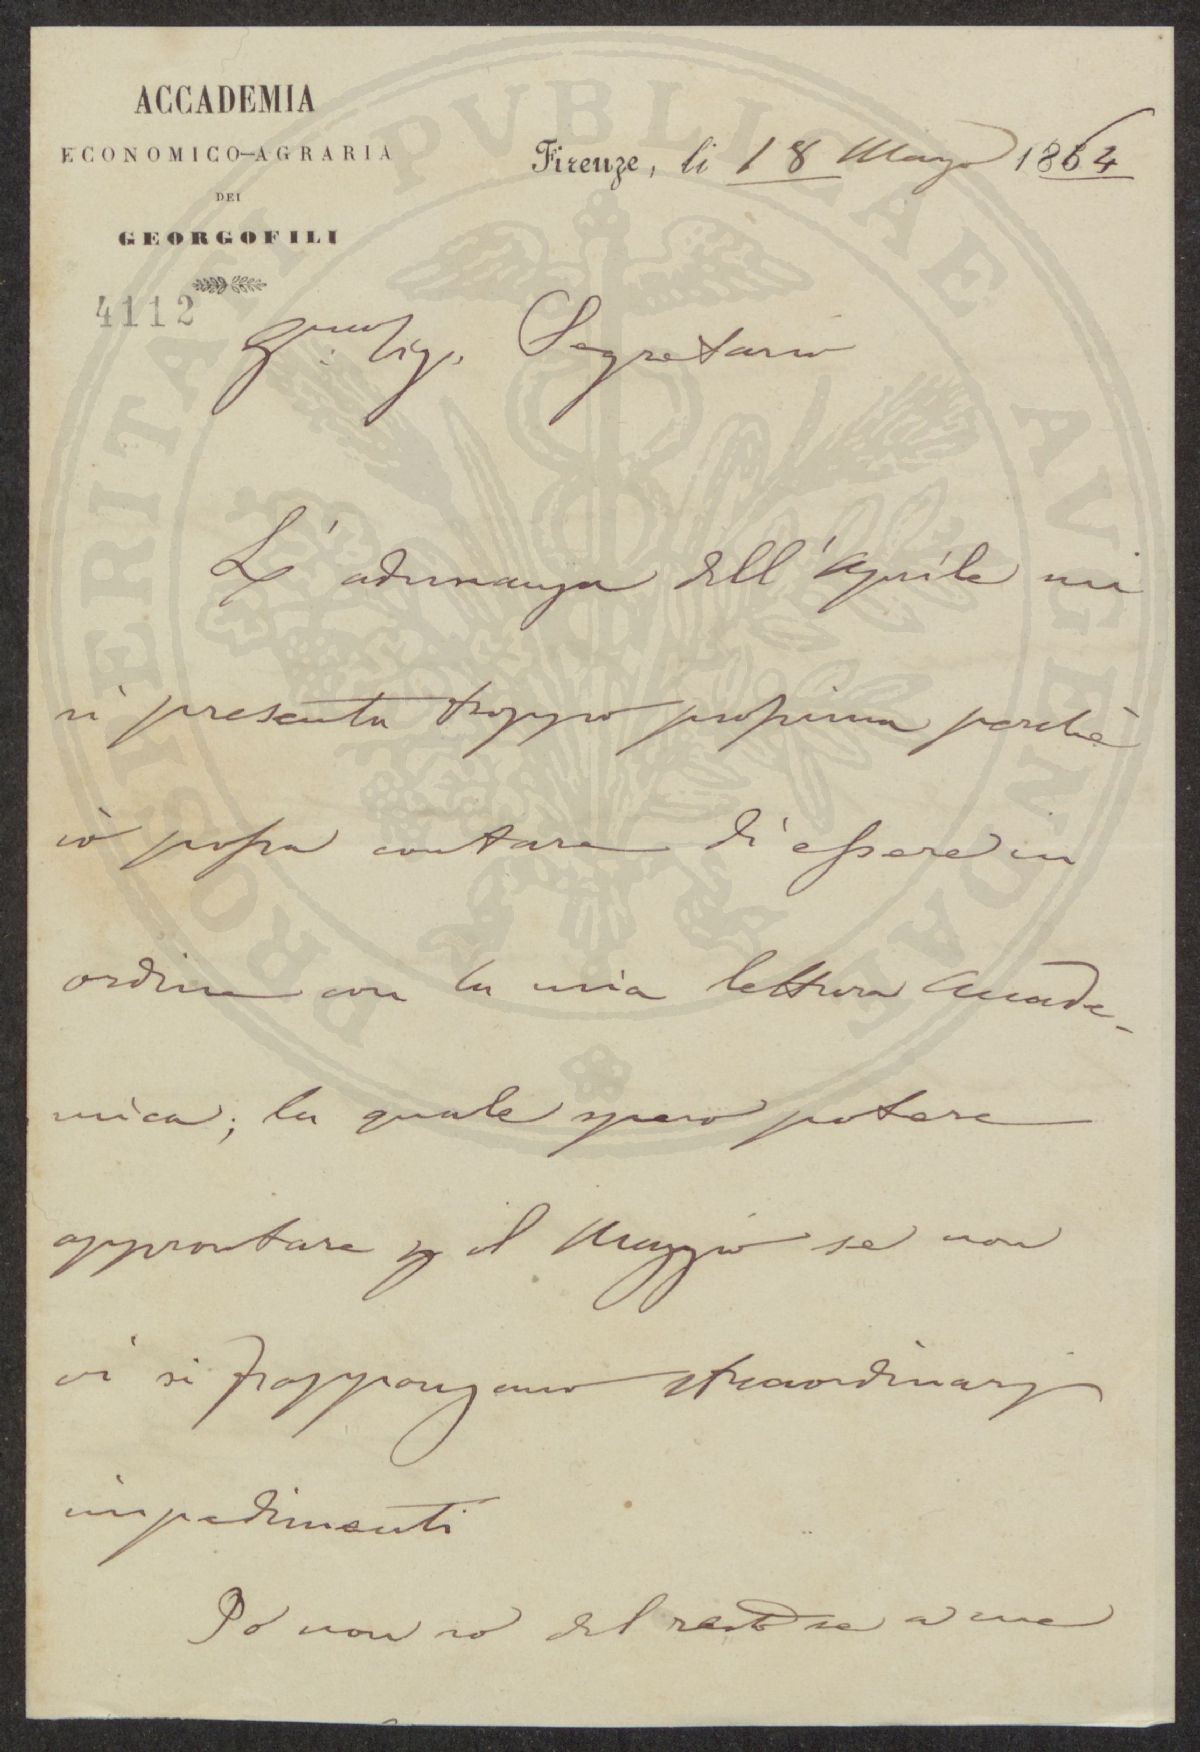 ACCADEMIA
ECONOMICO-AGRARIA
DEI
GEORGOFILI
4112
Firenze, li 18 Marzo 1864
Sig. Segretario
L'adunanza dell'Aprile mi
si presenta troppo prossima perchè
io possa contare di essere in
ordine con la mia lettura Accade-
mica; la quale spero potere
approntare p il Maggio se non
vi si frappongano straordinarj
impedimenti
Io non so del resto se a me
PROSPERITATI PVBLICAE AVGENDAE